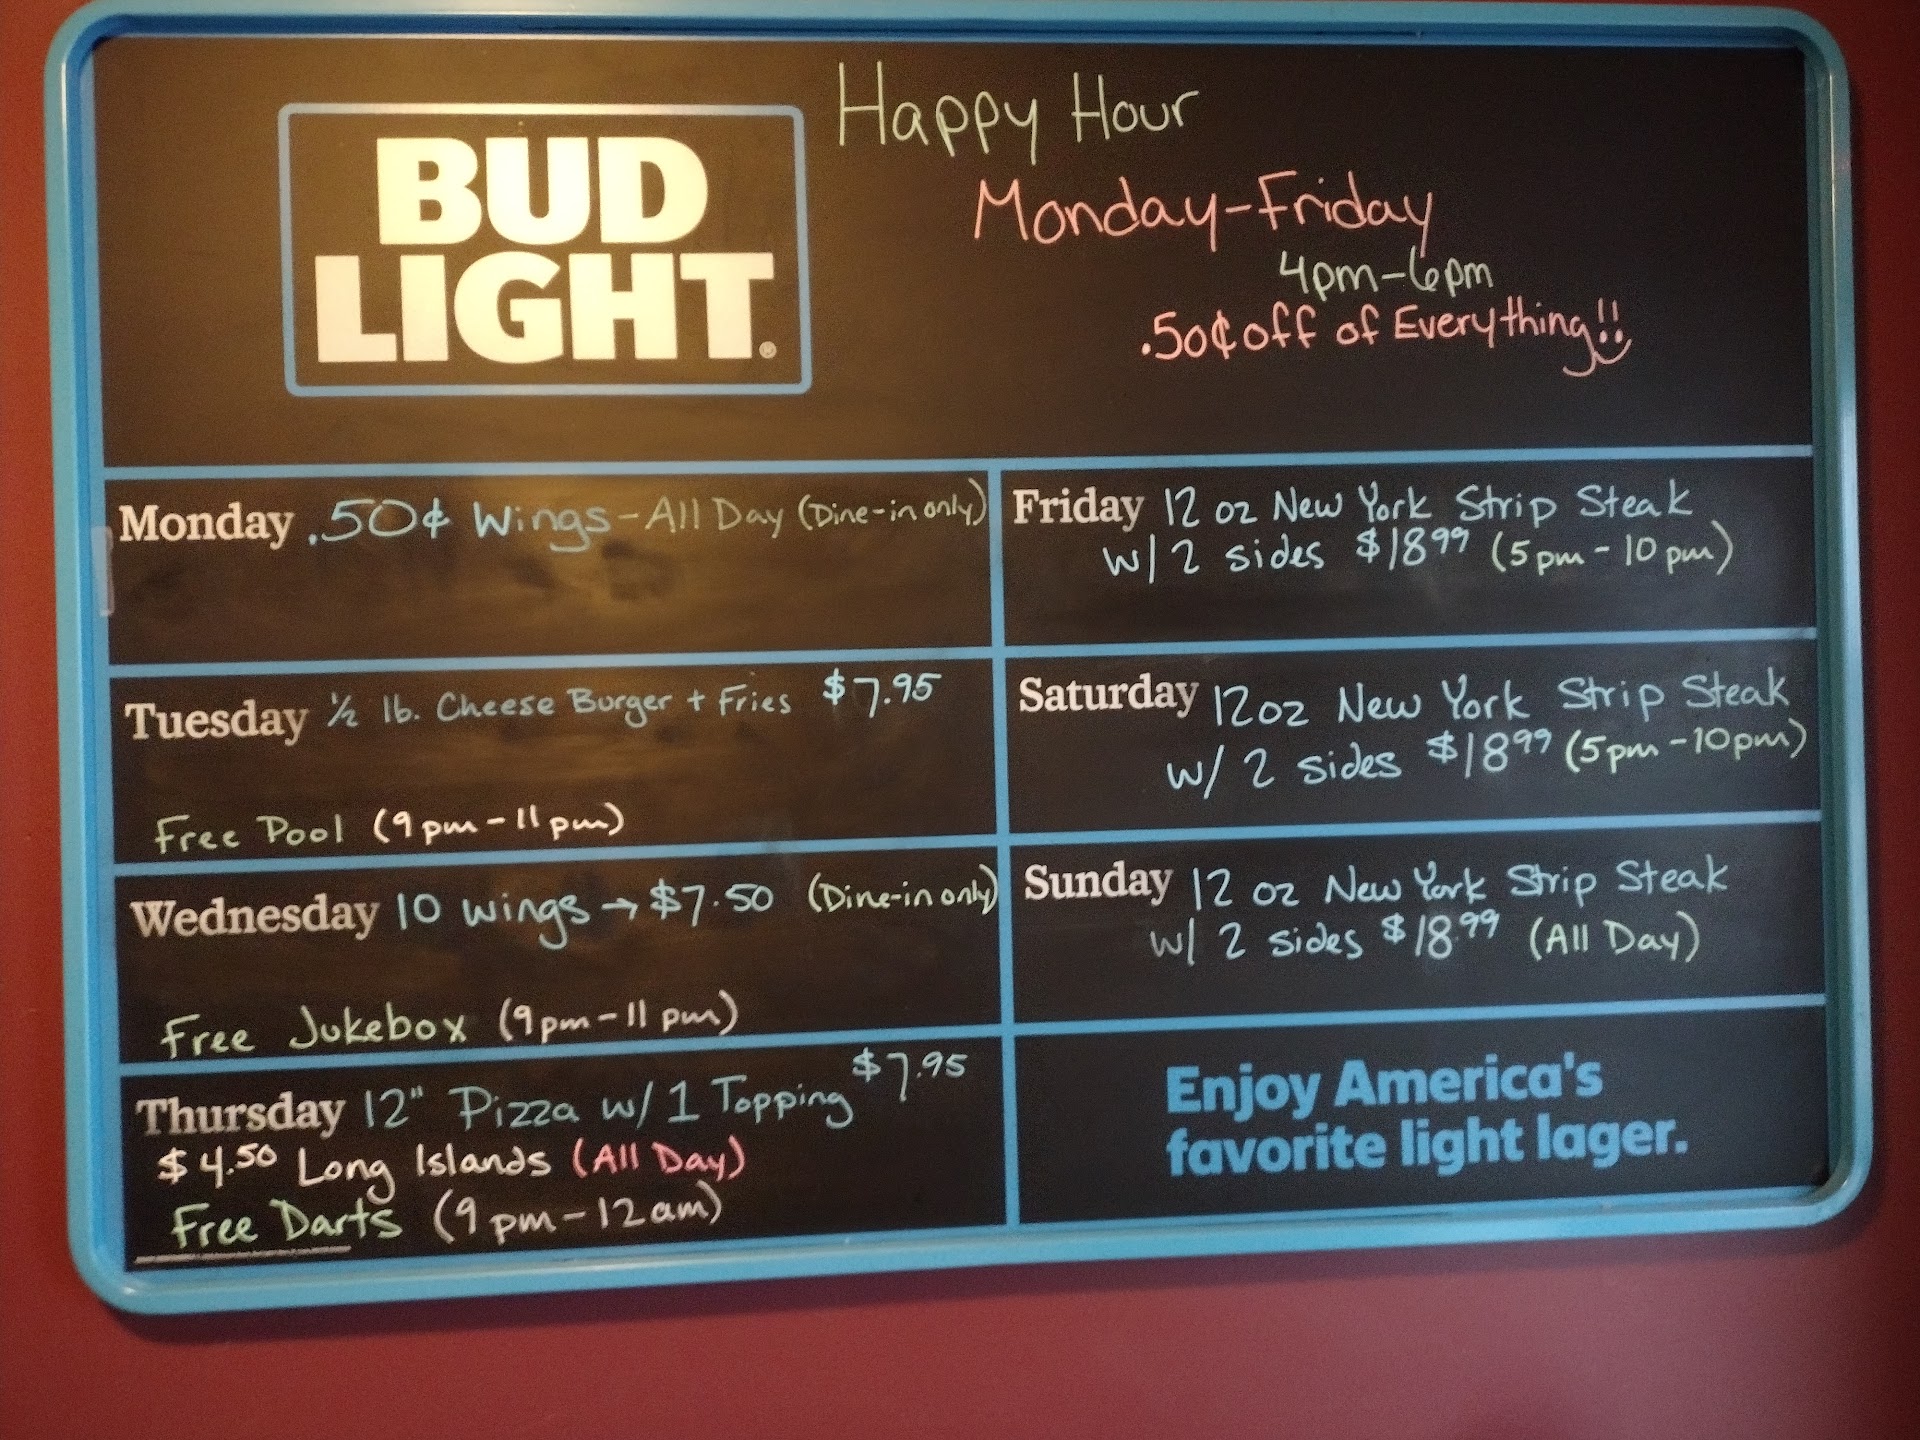 BUD
LIGHT®
Happy Hour
Monday-Friday
4pm-6pm
.50¢ off of Everything!!
Monday .50¢ Wings - All Day (Dine-in only)
Tuesday ½ lb. Cheese Burger + Fries $7.95
Free Pool (9pm-11pm)
Wednesday 10 wings → $7.50 (Dine-in only)
Free Jukebox (9pm-11pm)
Thursday 12" Pizza w/ 1 Topping $7.95
$4.50 Long Islands (All Day)
Free Darts (9pm-12am)
Friday 12 oz New York Strip Steak
w/ 2 sides $18.99 (5pm-10pm)
Saturday 12oz New York Strip Steak
w/ 2 sides $18.99 (5pm-10pm)
Sunday 12 oz New York Strip Steak
w/ 2 sides $18.99 (All Day)
Enjoy America's
favorite light lager.